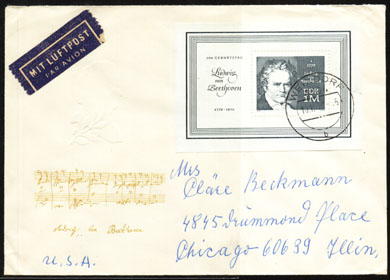 MIT LUFTPOST
PAR AVION
200. GEBURTSTAG
Ludwig
van
Beethoven
1770 - 1970
DDR 1M
b
Mrs
Cläre Beckmann
4845 Drummond Place
Chicago 60639 Illin.
U.S.A.